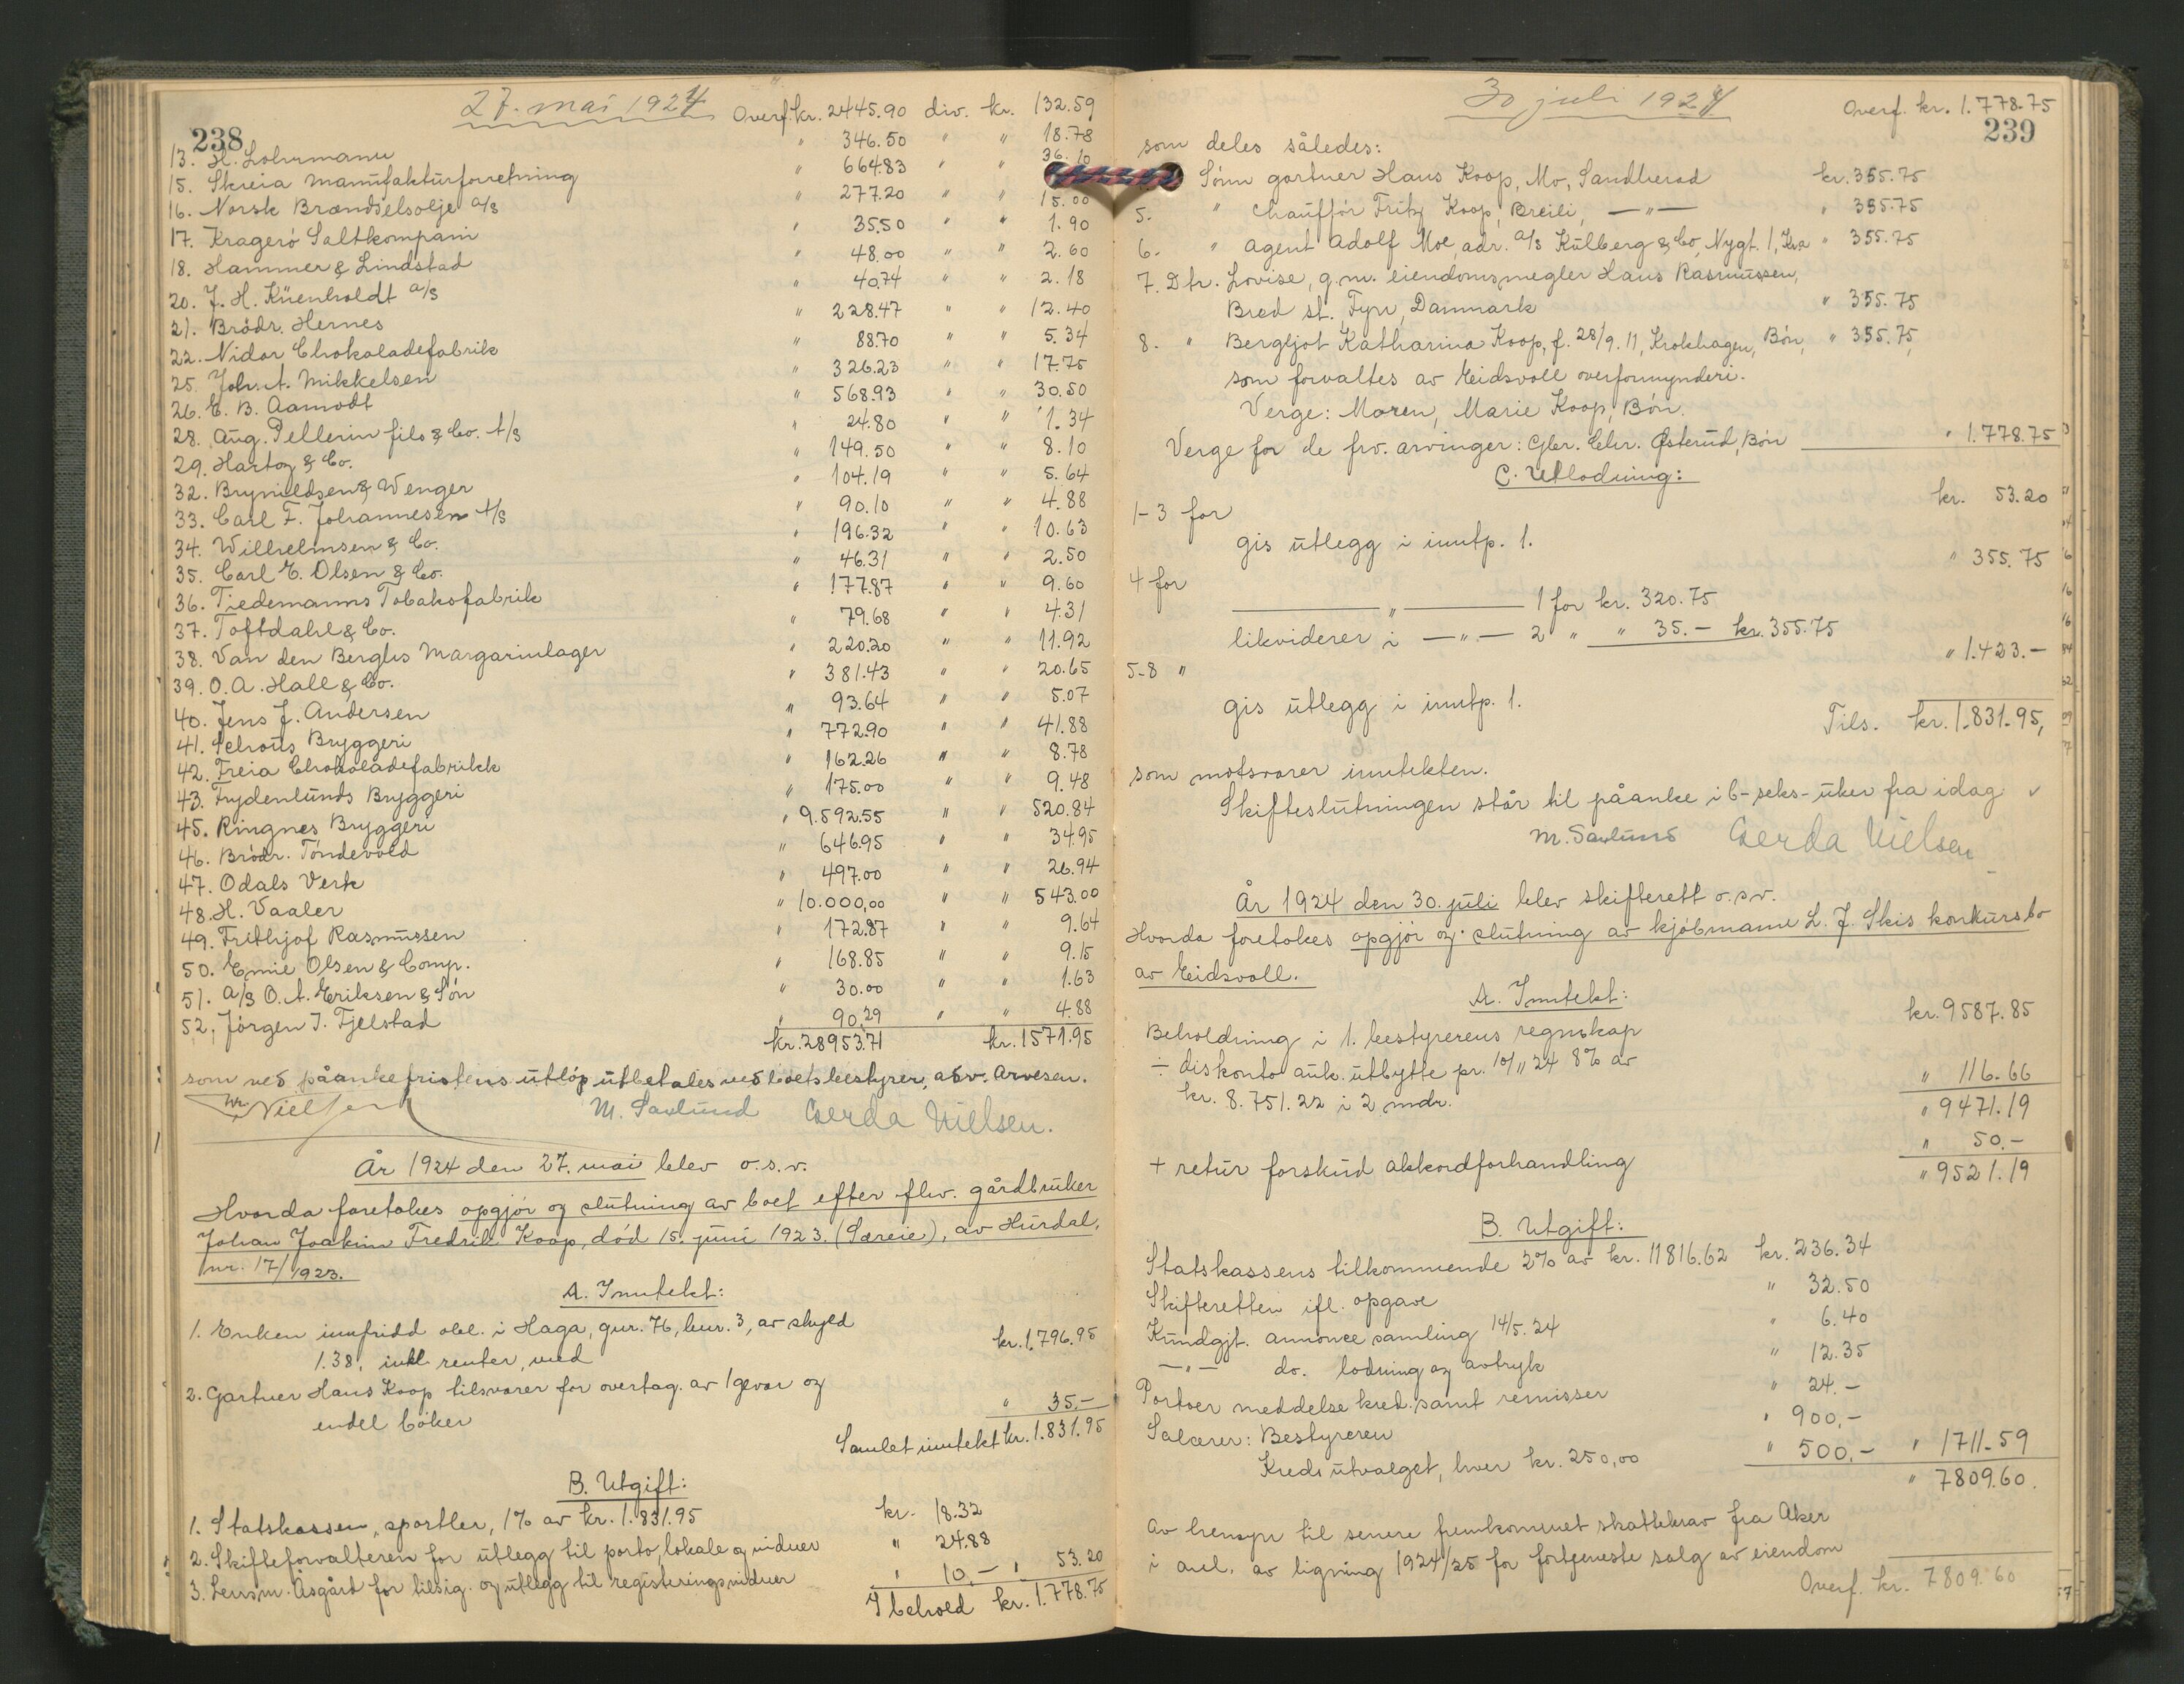 238
27. mai 1924
Overf. kr. 2445.90 div. kr. 132.59
13. H. Lohrmann " 346.50 " " 18.78
15. Skreia Manufakturforretning " 664.83 36.10
16. Norsk Brændselsolje A/S " 277.20 " 15.00
17. Kragerö Saltkompani " 35.50 " " 1.90
18. Hammer & Lindstad " 48.00 " " 2.60
20. J. H. Küenholdt A/S " 40.74 " " 2.18
21. Brödr. Hernes " 228.47 " " 12.40
22. Nidar Chokoladefabrik " 88.70 " " 5.34
25. Joh. A. Mikkelsen " 326.23 " " 17.75
26. E. B. Aamodt " 568.93 " " 30.50
28. Aug. Pellerin fils & Co. A/S " 24.80 " " 1.34
29. Hartog & Co. " 149.50 " " 8.10
32. Brynildsen & Wenger " 104.19 " " 5.64
33. Carl F. Johannesen A/S " 90.10 " " 4.88
34. Wilhelmsen & Co. " 196.32 " " 10.63
35. Carl E. Olsen & Co. " 46.31 " " 2.50
36. Tiedemanns Tobaksfabrik " 177.87 " " 9.60
37. Toftdahl & Co. " 79.68 " " 4.31
38. Van den Berghs Margarinlager " 220.20 " " 11.92
39. O. A. Hall & Co. " 381.43 " " 20.65
40. Jens J. Andersen " 93.64 " " 5.07
41. Schous Bryggeri " 772.90 " " 41.88
42. Freia Chokoladefabrikk " 162.26 " " 8.78
43. Frydenlunds Bryggeri " 175.00 " " 9.48
45. Ringnes Bryggeri " 9.592.55 " " 520.84
46. Brödr. Töndevold " 646.95 " " 34.95
47. Odals Verk " 497.00 " " 26.94
48. H. Vaaler " 10.000,00 " " 543.00
49. Frithjof Rasmussen " 172.87 " " 9.64
50. Emie Olsen & Comp. " 168.85 " " 9.15
51. A/S O. A. Eriksen & Sön " 30.00 " " 1.63
52. Jörgen J. Fjelstad " 90.29 " " 4.88
kr. 28953.71 kr. 1571.95
som ved påankefristens utlöp utbetales ved boets bestyrer, adv. Arvesen.
Nielsen M. Saxlund Gerda Nielsen.
År 1924 den 27. mai blev o.s.v.
Hvorda foretokes opgjör og slutning av boet efter flv. gårdbruker
Johan Joakim Fredrik Koop, död 15. juni 1923. (Særeie), av Hurdal,
nr. 17/1923.
A. Inntekt:
1. Enken innfridd obl. i Haga, gnr. 76, bnr. 3, av skyld
1.38, inkl. renter, med kr. 1.796.95
2. Gartner Hans Koop tilsvarer for overtag. av 1 gevær og
endel böker " 35.-
Samlet inntekt kr. 1.831.95
B. Utgift:
1. Statskassen, sportler, 1% av kr. 1.831.95 kr. 18.32
2. Skifteforvalteren for utlegg til porto, lokale og vidner " 24.88
3. Lensm. Åsgård for tilsig. og utlegg til registeringsvidner " 10.- " 53.20
I behold kr. 1.778.75
30 juli 1924
Overf. kr. 1.778.75
239
som deles således:
Sönn gartner Hans Koop, Mo, Sandherad kr. 355.75
5. " Chaufför Fritz Koop, Breili, —"— " 355.75
6. " Agent Adolf Moe, adr. A/S Kulberg & Co, Nygt. 1, Kra " 355.75
7. Dtr. Lovise, g.m. eiendomsmegler Hans Rasmussen,
Bred st. Fyn, Danmark " 355.75
8. " Bergljot Katharina Koop, f. 28/9.11, Krokhagen, Bön, " 355.75,
som forvaltes av Eidsvoll overformynderi.
Verge: Maren Marie Koop, Bön.
Verge for de frv. arvinger: Gbr. Chr. Østerud, Bön " 1.778.75
C. Utlodning:
1-3 for kr. 53.20
gis utlegg i inntp. 1.
4 for " 355.75
——— " ——— 1 for kr. 320.75
likviderer i —"— 2 " " 35.- kr. 355.75
5-8 " " 1.423.-
gis utlegg i inntp. 1.
Tils. kr. 1.831.95,
som motsvarer inntekten.
Skifteslutningen står til påanke i 6-seks-uker fra idag
M. Saxlund Gerda Nielsen
År 1924 den 30. juli blev skifterett o.s.v.
Hvorda foretokes opgjör og slutning av kjöbmann L. J. Skis konkursbo
av Eidsvoll.
A. Inntekt:
Beholdning i 1. bestyrerens regnskap kr. 9587.85
÷ diskonto auk. utbytte pr. 10/11 24 8% av
kr. 8.751.22 i 2 mdr. " 116.66
" 9471.19
+ retur forskud akkordforhandling " 50.-
" 9521.19
B. Utgift:
Statskassens tilkommende 2% av kr. 11816.62 kr. 236.34
Skifteretten ifl. opgave " 32.50
Kundgjt. annonce samling 14/5.24 " 6.40
—"— do. lodning og avtryk " 12.35
Portoer meddelse kred. samt remisser " 24.-
Salærer: Bestyreren " 900.-
Kreds utvalget, hver kr. 250,00 " 500.- " 1711.59
" 7809.60.
Av hensyn til senere fremkommet skattekrav fra Aker
i anl. av ligning 1924/25 for fortjeneste salg av eiendom
Overf. kr. 7809.60